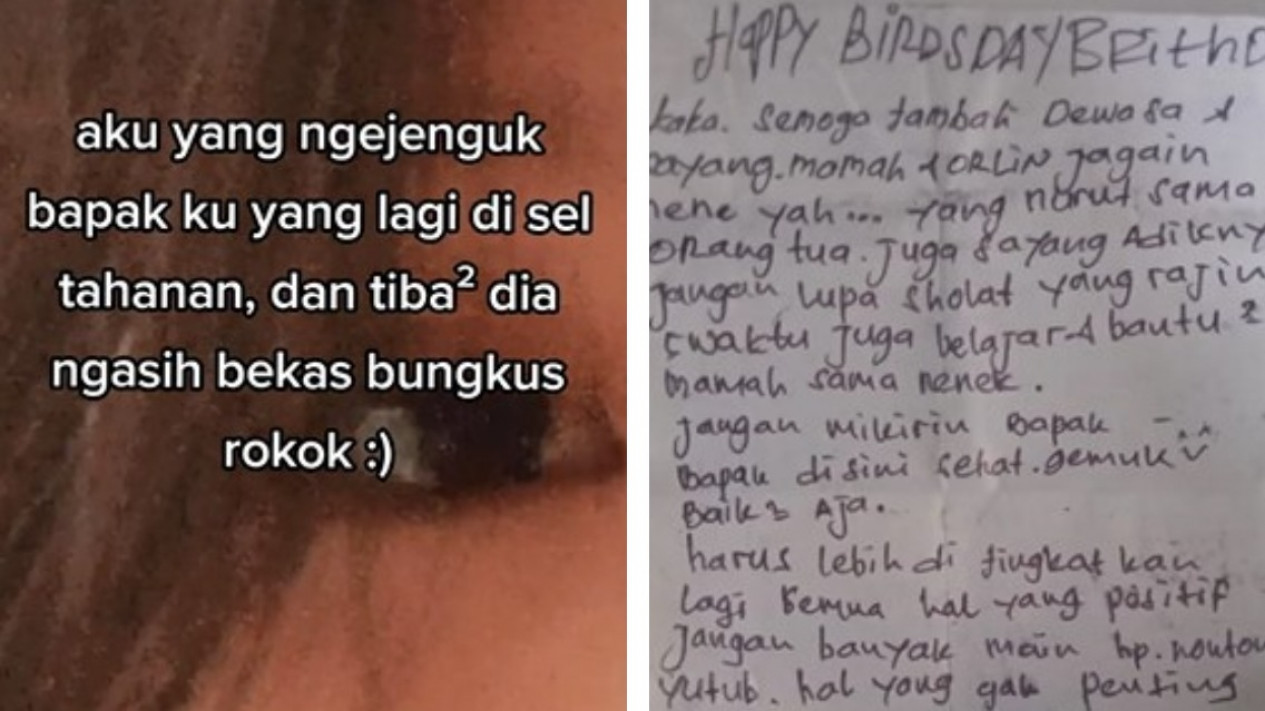 aku yang ngejenguk
bapak ku yang lagi di sel
tahanan, dan tiba² dia
ngasih bekas bungkus
rokok :)
HAPPY BIRDSDAY BRITHD
kaka. semoga tambah Dewasa &
sayang. mamah & ORLIN jagain
nene yah... yang nurut sama
orang tua. juga sayang Adikny
jangan lupa sholat yang rajin
5waktu juga belajar & bantu 2
mamah sama nenek.
jangan mikirin Bapak
Bapak disini sehat. gemuk
Baik2 Aja.
harus lebih di tingkat kan
lagi semua hal yang positif
Jangan banyak main hp. nonton
yutub. hal yang gak penting